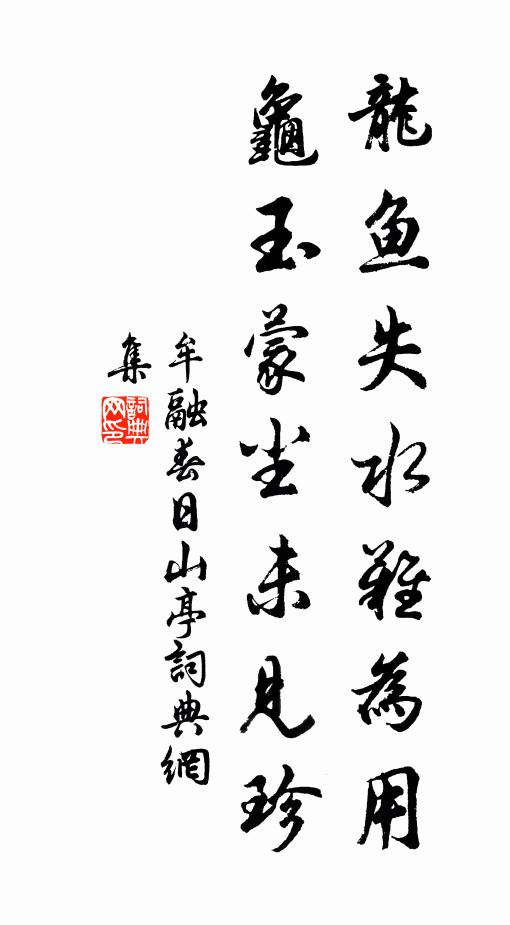 龍魚失水難為用
龜玉蒙尘未見珍
牟融春日山亭詞典網
集
詞典
网印